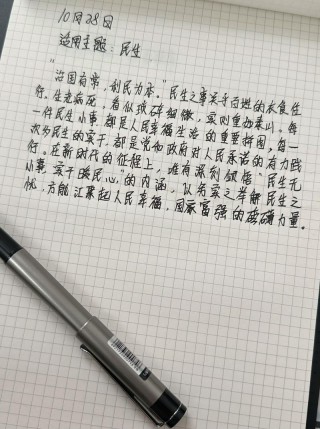 10月28日
适用主题：民生
"治国有常，利民为本。"民生之事关乎百姓的衣食住
行、生老病死，看似琐碎细微，实则重如泰山。每
一件民生小事，都是人民幸福生活的重要拼图，每一
次为民生的实干，都是党和政府对人民承诺的有力践
行。在新时代的征程上，唯有深刻领悟"民生无
小事，实干暖民心"的内涵，以务实之举解民生之
忧，方能汇聚起人民幸福、国家富强的磅礴力量。